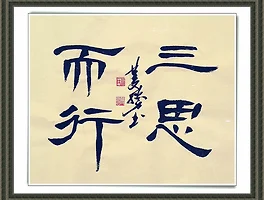 三思
而行